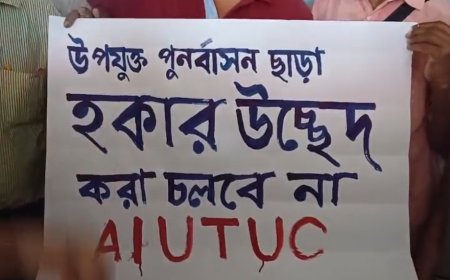 উপযুক্ত পুনর্বাসন ছাড়া
হকার উচ্ছেদ
করা চলবে না
AIUTUC